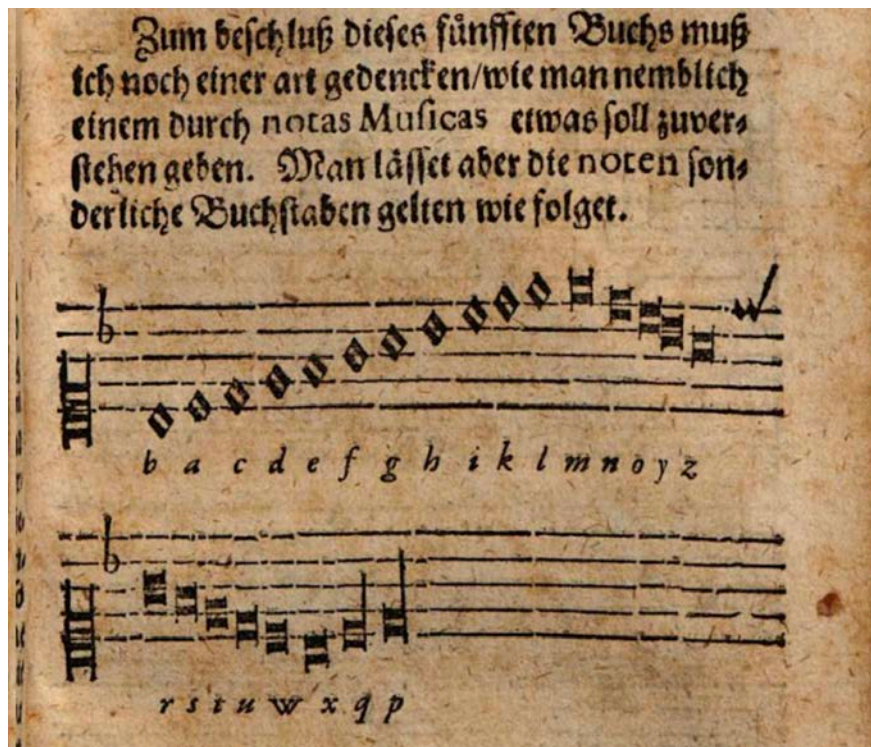 Zum beschluß dieses fünfften Buchs muß
ich noch einer art gedencken/wie man nemblich
einem durch notas Musicas etwas soll zuver⸗
stehen geben. Man lässet aber die noten son⸗
derliche Buchstaben gelten wie folget.
b a c d e f g h i k l m n o y z
r s t u w x q p